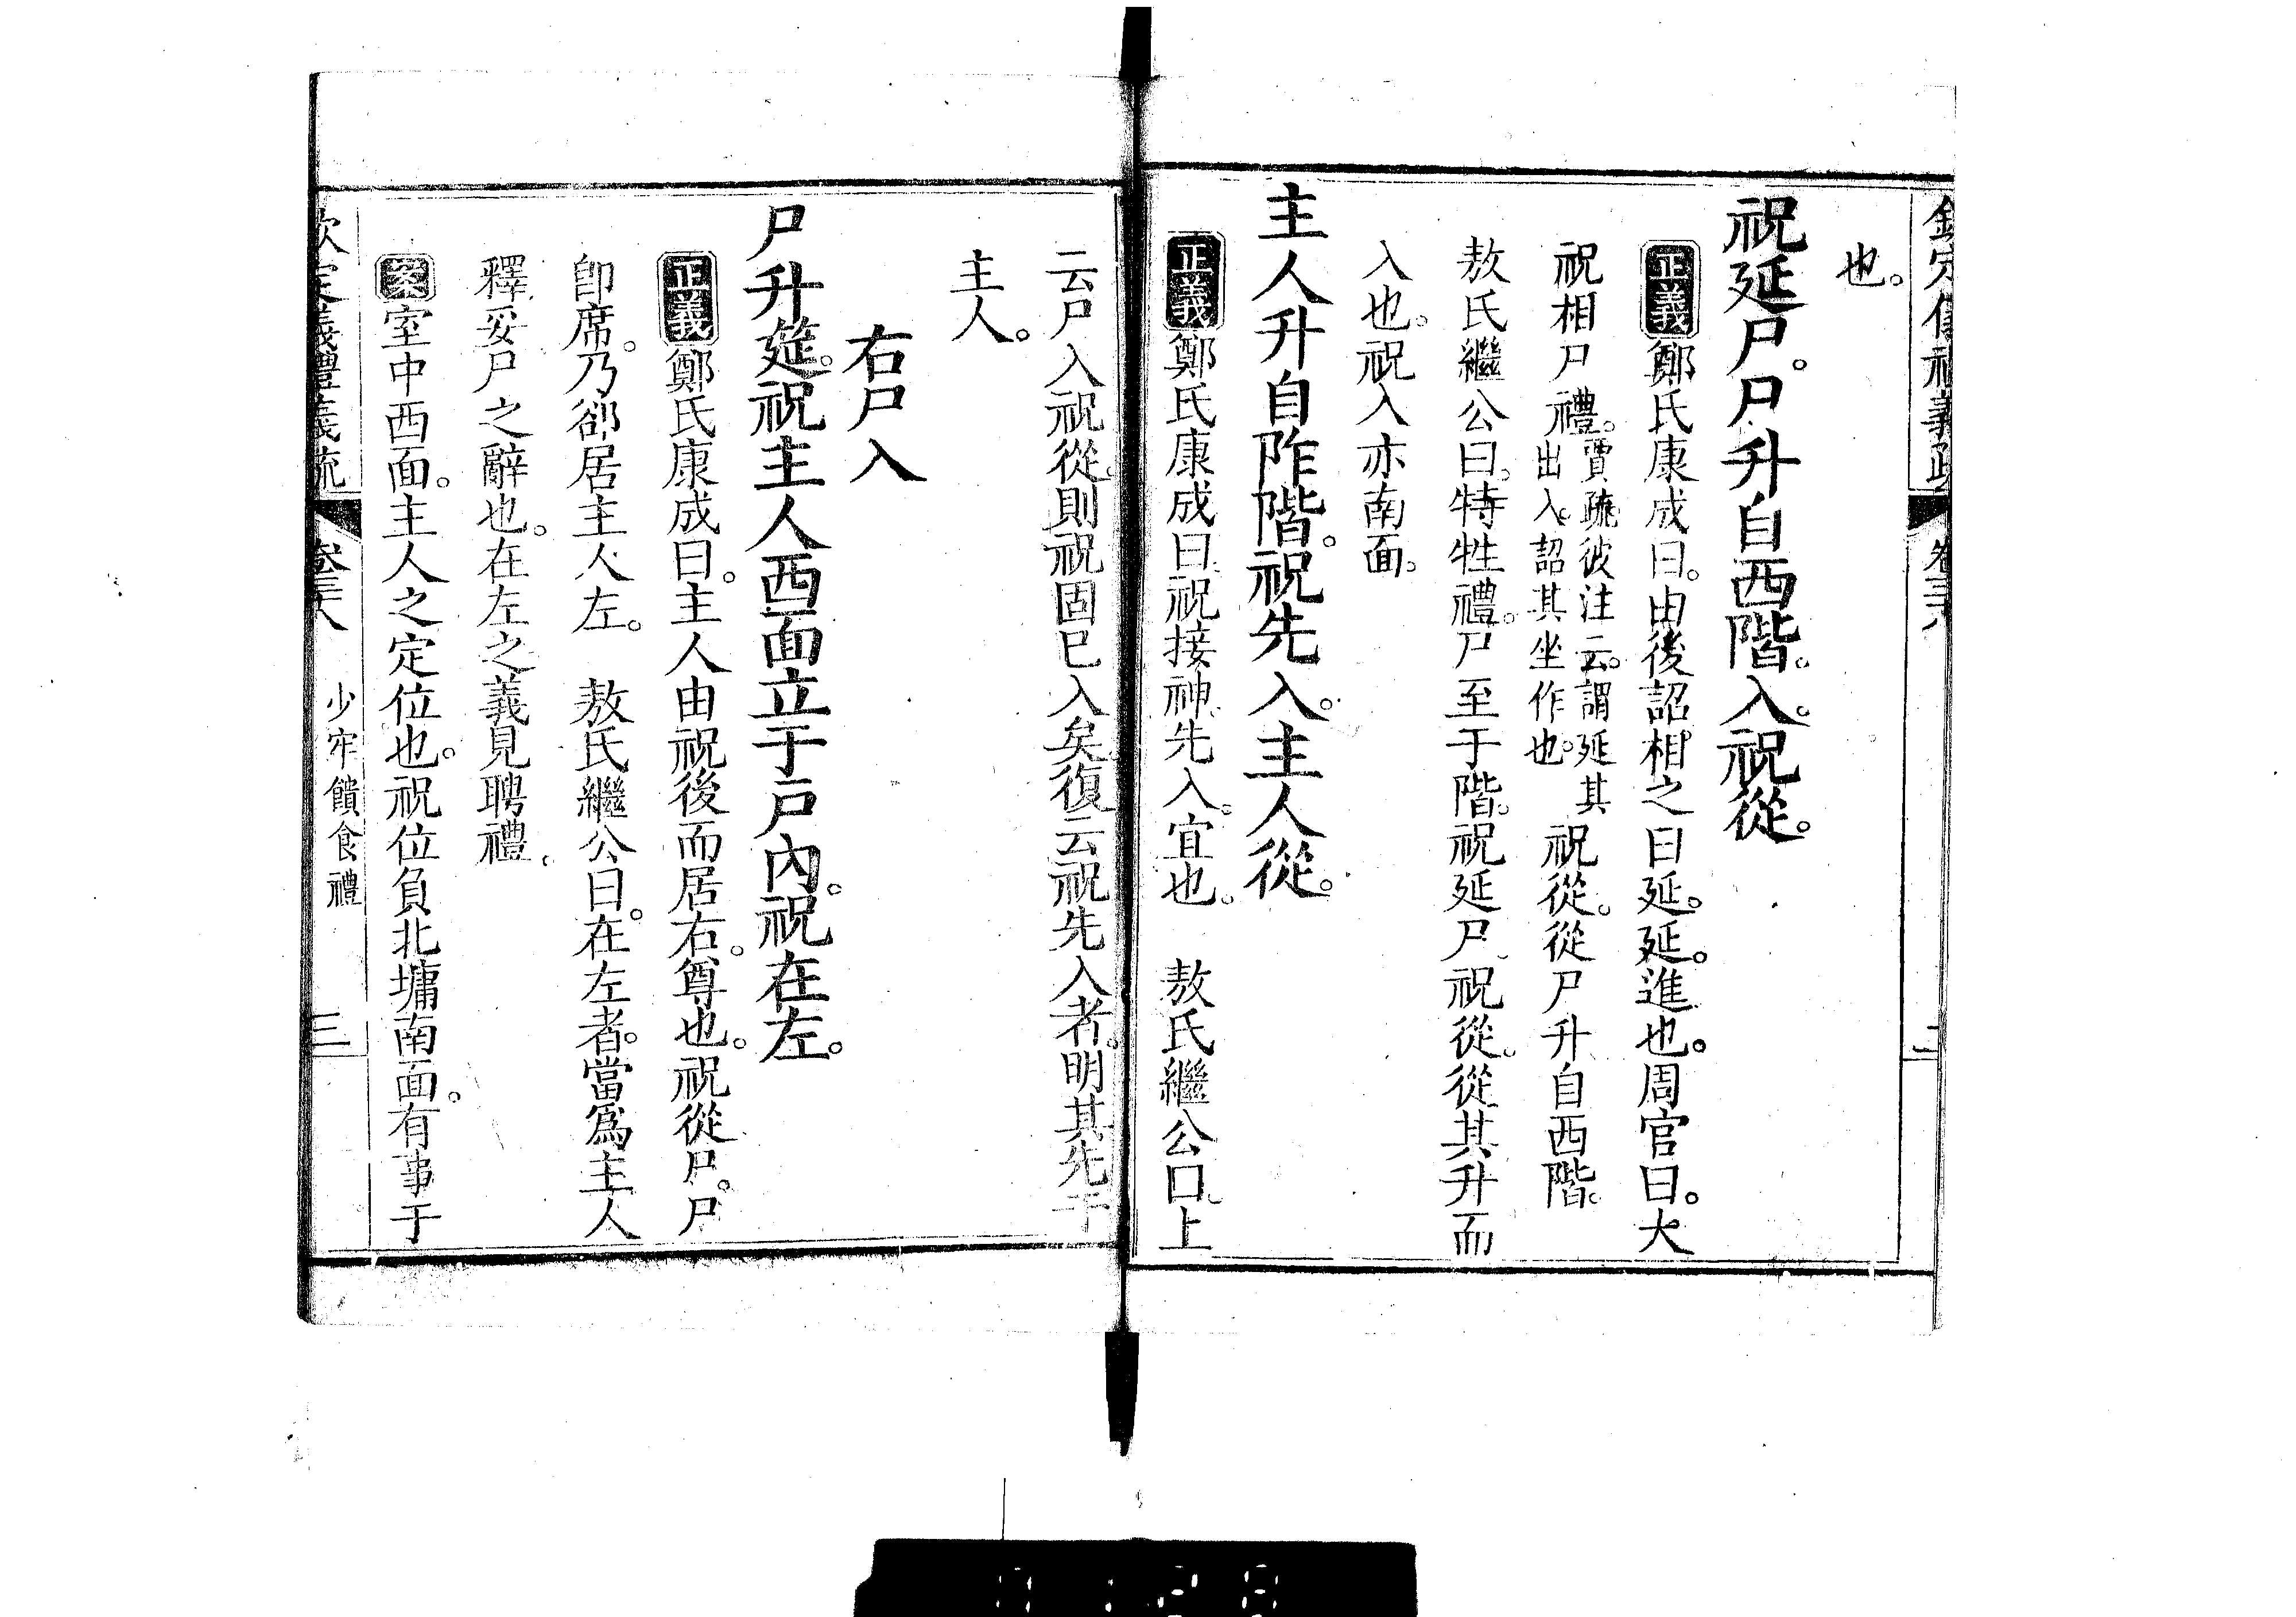 欽定儀禮義疏　卷三十八　二
也。
祝延尸。尸升自西階。入。祝從。
正義鄭氏康成曰。由後詔相之曰延。延。進也。周官曰。大
祝相尸禮。賈疏。彼注云。謂延其出入。詔其坐作也。祝從。從尸升自西階。
敖氏繼公曰。特牲禮。尸至于階。祝延尸。祝從。從其升而
入也。祝入亦南面。
主人升自阼階。祝先入。主人從。
正義鄭氏康成曰。祝接神。先入。宜也。　敖氏繼公曰。上
云尸入祝從。則祝固已入矣。復云祝先入者。明其先于
主人。
右尸入
尸升筵。祝主人西面立于戶內。祝在左。
正義鄭氏康成曰。主人由祝後而居右。尊也。祝從尸。尸
卽席。乃郤居主人左。　敖氏繼公曰。在左者。當爲主人
釋妥尸之辭也。在左之義見聘禮。
案室中西面。主人之定位也。祝位負北墉南面。有事于
欽定義禮義疏　卷三十八　少牢饋食禮　三